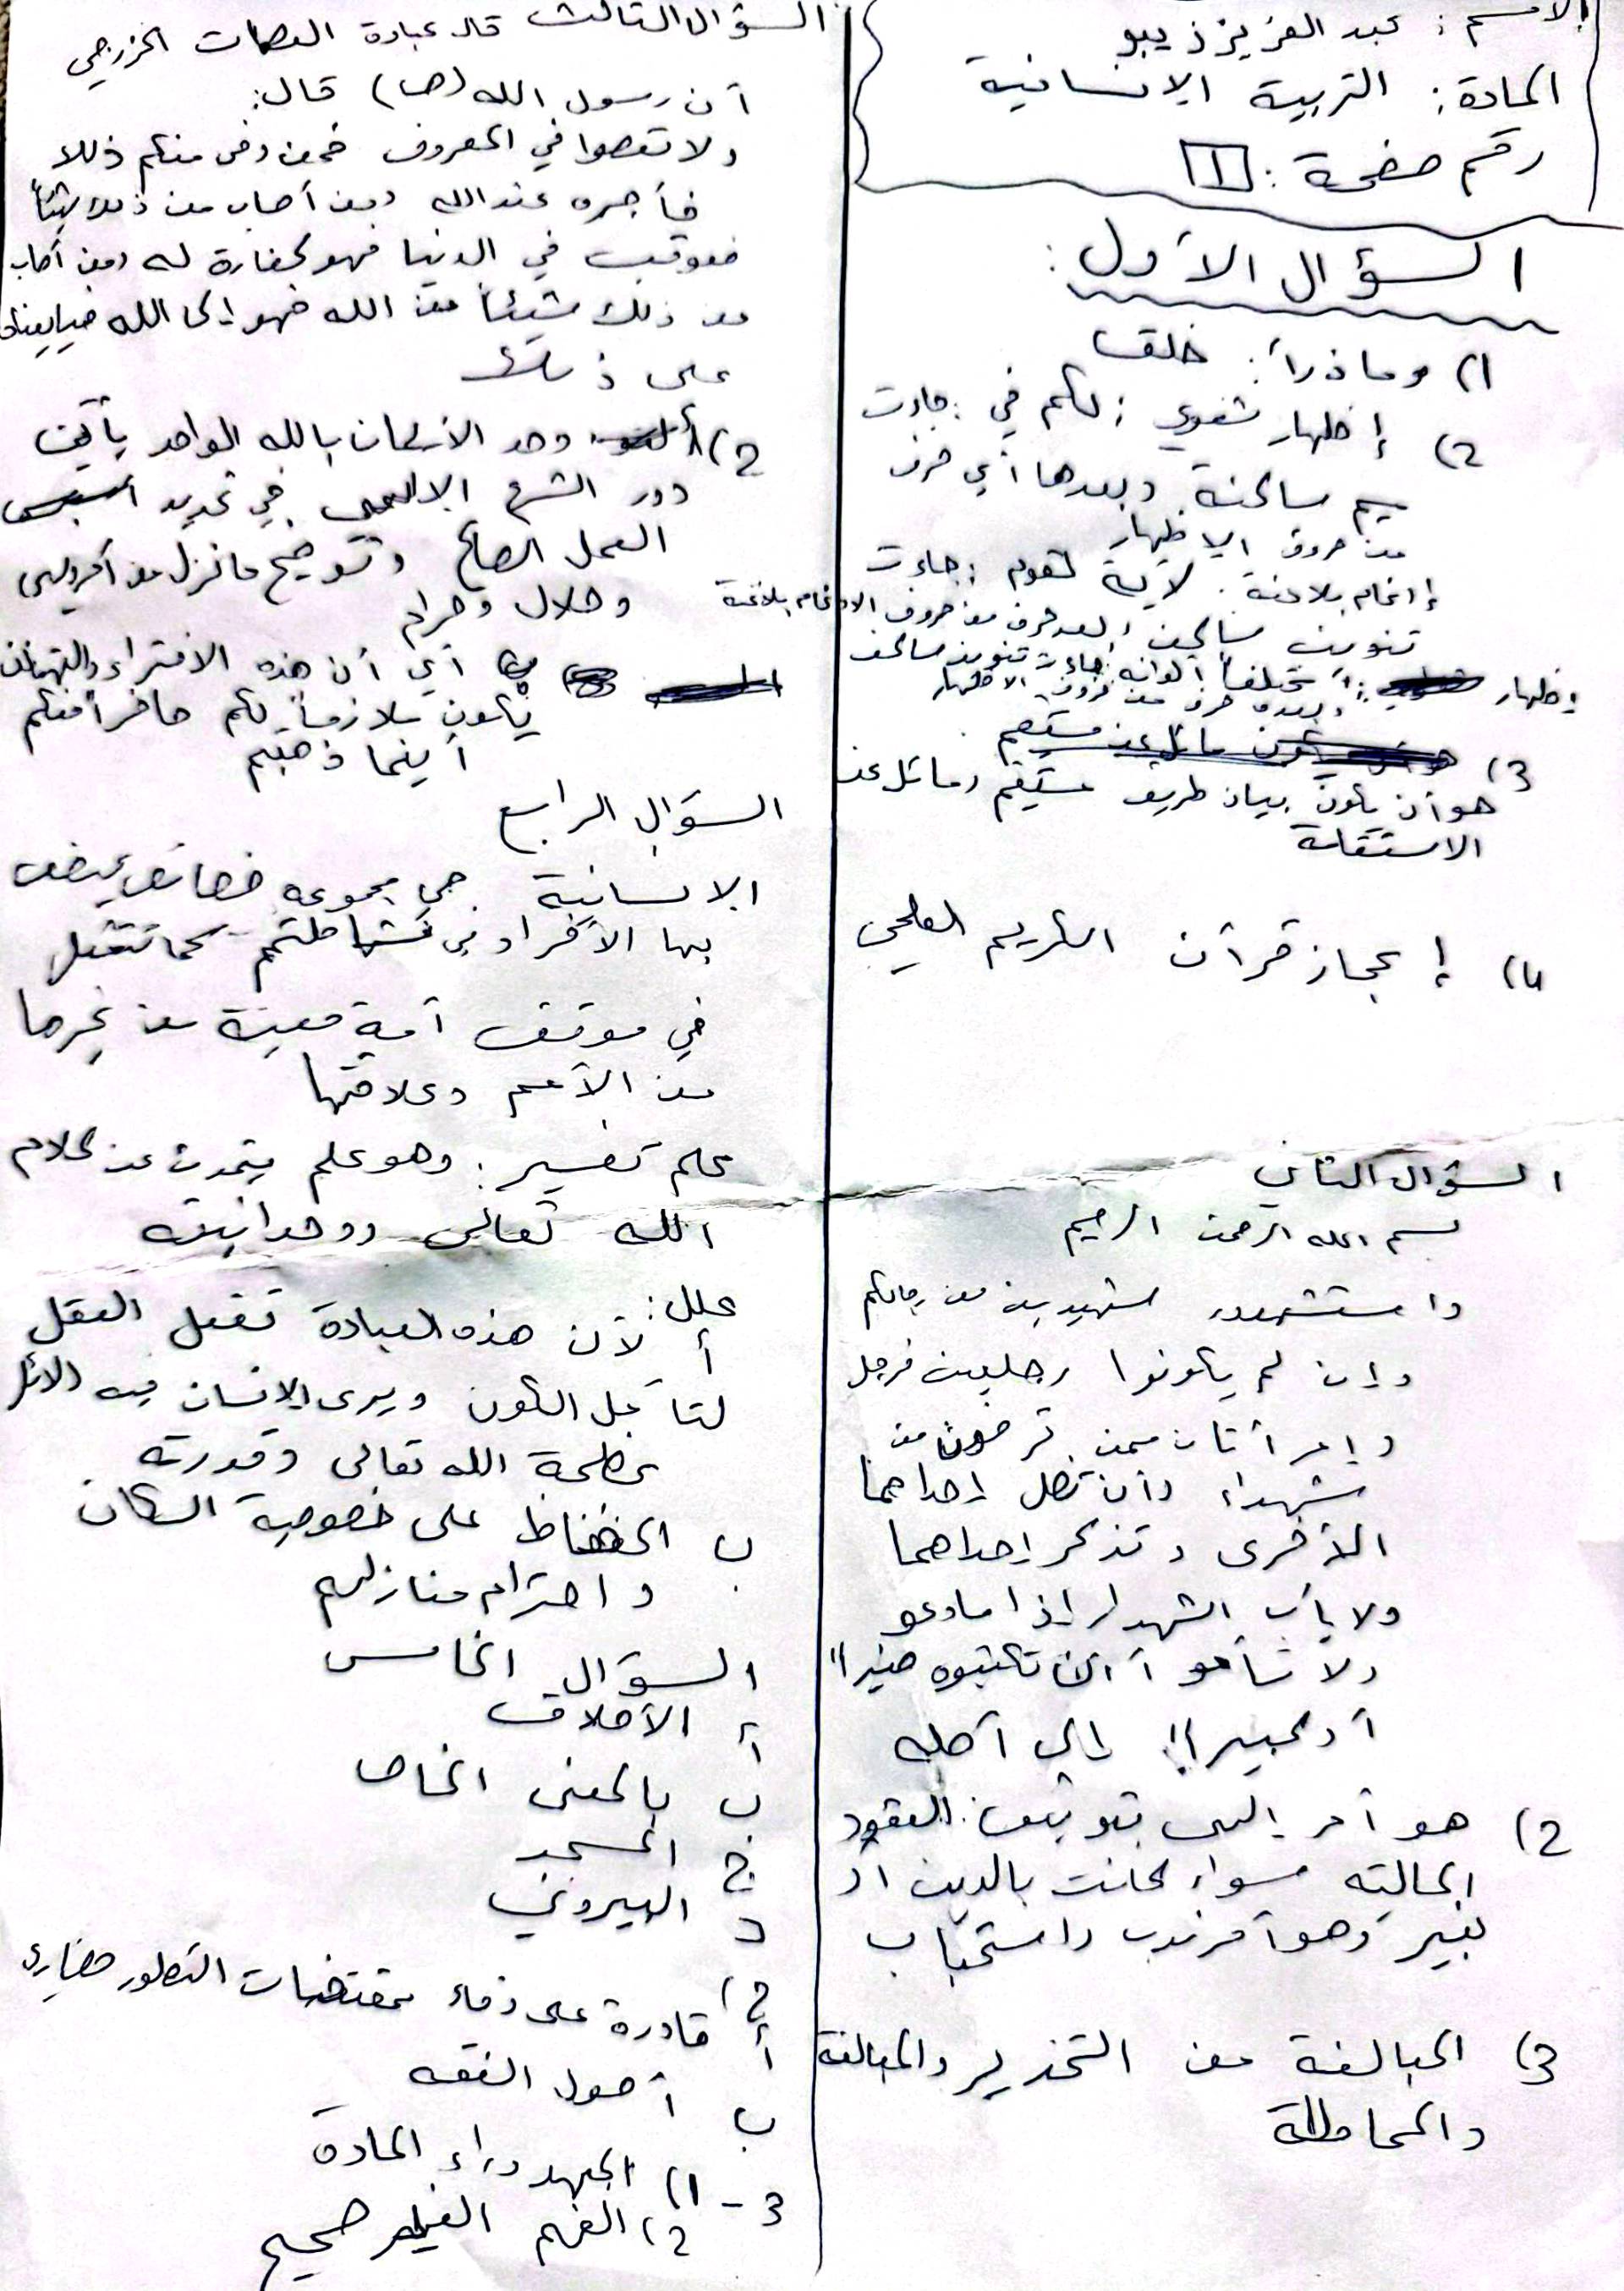 الاسم: عبد العزيز ذيبو
المادة: التربية الانسانية
رقم صفحة: 1
السؤال الأول:
1) وماذرأ: خلق
2) إظهار شفوي: لكم في: جاءت
ميم ساكنة وبعدها أي حرف
من حروف الاظهار
إدغام بلاغنة: لآية لقوم: جاءت
تنوين ساكن وبعد حرف من حروف الادغام بلاغنة
إظهار: مختلفاً ألوانه: جاءت تنوين ساكن
وبعده حرف من حروف الاظهار
3) هو أن يكون بيان طريق مستقيم ومائل عن
الاستقامة
4) إعجاز قرآن الكريم العلمي
السؤال الثاني
بسم الله الرحمن الرحيم
واستشهدو شهيدين من رجالكم
وإن لم يكونوا رجلين فرجل
وإمرأتان ممن ترضون من
شهداء وأن تضل إحداهما
الأخرى وتذكر إحداهما
ولا يأب الشهداء إذا مادعو
ولا تسأمو أ ان تكتبوه صغيراً
أو كبيراً إلى أجله
2) هو أمر إلهى بتوثيق العقود
المالية سواء كانت بالدين أو
بغير وهو أمر ندب واستحباب
3) المبالغة من التحذير والمبالغة
والمماطلة
السؤال الثالث قال عبادة الصامت الخزرجي
أن رسول الله (ص) قال:
ولا تعصوا في المعروف فمن وفى منكم ذلك
فأجره عند الله ومن أصاب من ذلك شيئاً
فعوقب في الدنيا فهو كفارة له ومن أصاب
من ذلك شيئاً من الله فهو إلى الله فبايعناه
على ذلك
2) أ وحد الأيمان بالله الواحد يأتي
دور الشرع الالهي في تحديد
العمل الصالح وتوضيح مانزل من أمرونهى
وحلال وحرام
ب أي أن هذه الافتراء والبهتان
يكون ملازماً لكم حاضراً معكم
أينما ذهبتم
السؤال الرابع
الانسانية هي مجموعه خصائص يتصف
بها الأفراد في كما تتمثل
في موقف أمة معينة من غيرها
من الأمم وعلاقتها
علم تفسير: وهو علم يتحدث عن كلام
الله تعالى ووحدانيته
علل:
أ لأن هذه العبادة تفعل العقل
لتأمل الكون ويرى الانسان فيه دلائل
عظمة الله تعالى وقدرته
ب الحفاظ على خصوصية السكان
واحترام منازلهم
السؤال الخامس
أ الأخلاق
ب بالمعنى الخاص
ج المسجد
د البيروني
2)
أ قادرة على وفاء بمقتضيات التطور حضاري
ب أصول الفقه
3 - 1) الجهد وراء المادة
2) الفهم الغير صحيح